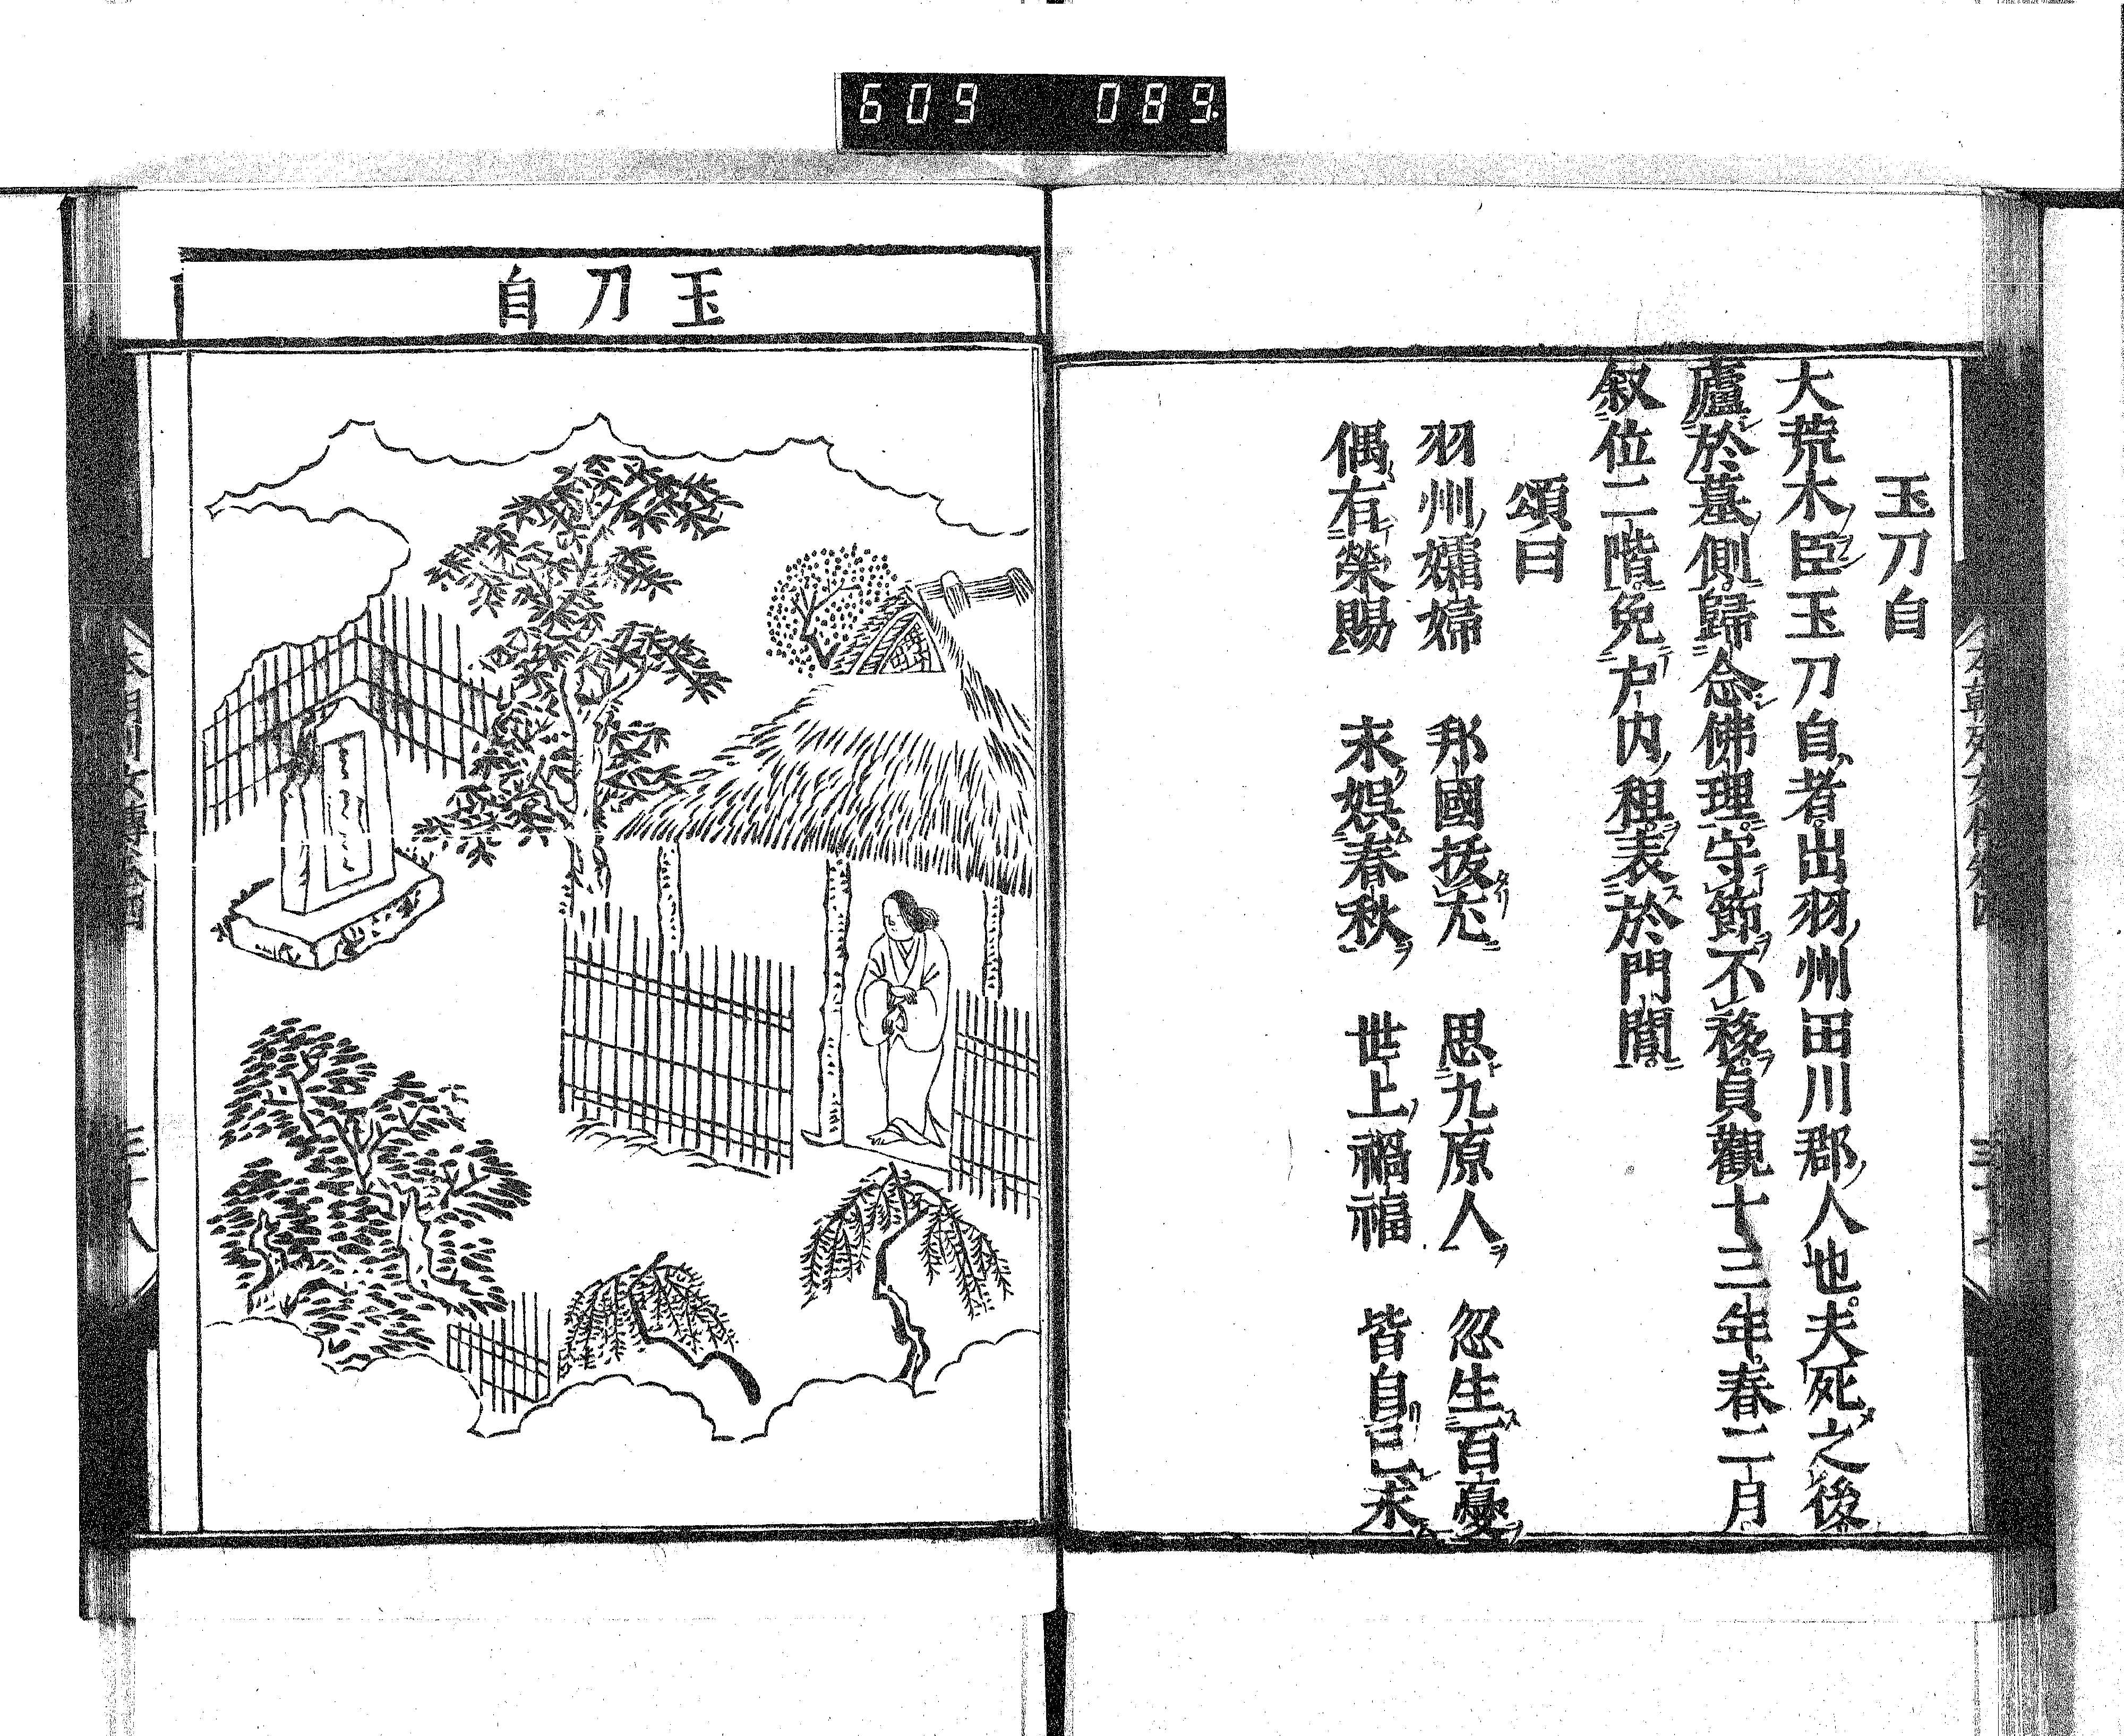 609 089.
玉刀自
大荒木臣玉刀自者出羽州田川郡人也夫死之後
廬於墓側歸念佛理守節不移貞觀十三年春二月
叙位二階免户内租表於門閭
頌曰
羽州孀婦 邦國拔尤 思九原人 忽生百憂
偶有榮賜 末娯春秋 世上禍福 皆自己求
玉刀自